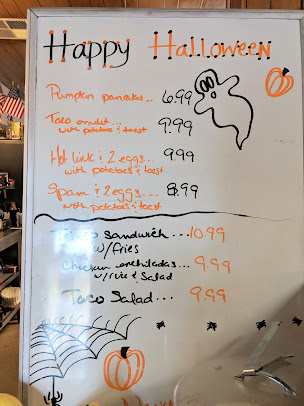 Happy Halloween
Pumpkin pancakes.. 6.99
Taco omelet... 9.99
with potatoes & toast
Hot link & 2 eggs... 9.99
with potatoes & toast
Spam & 2 eggs.... 8.99
with potatoes & toast
sandwich...10.99
w/fries
Chicken enchiladas... 9.99
w/rice & Salad
Taco Salad... 9.99